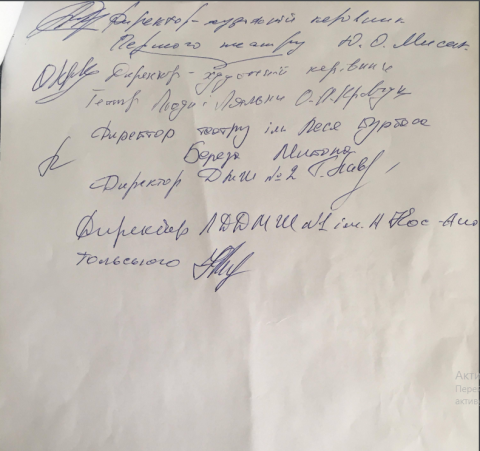 Директор-художній керівник
Першого театру Ю.О. Мисак
Директор - художній керівник
Театр Люди і Ляльки О.П. Кравчук
Директор театру ім. Леся Курбаса
Береза Микола
Директор ДМШ №2 Г.
Директор ЛДДМШ №1 ім. А Кос-Ана
тольського
Акти
Пере
актив